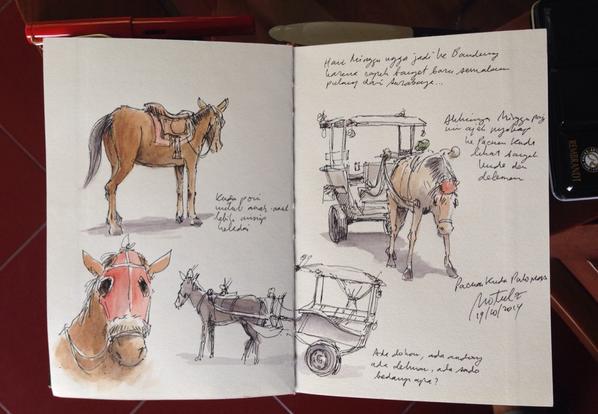 Hari Minggu ngga jadi ke Bandung
karena capek banget baru semalam
pulang dari Surabaya...
Akhirnya Minggu pagi
ke Pacuan Kuda
lihat
kuda dan
delman
Kuda poni
untuk anak-anak
lebih mirip
keledai
Pacuan Kuda Pulomas
19/10/2014
Ada dokar, ada andong
ada delman, ada sado
bedanya apa?
REMBRANDT